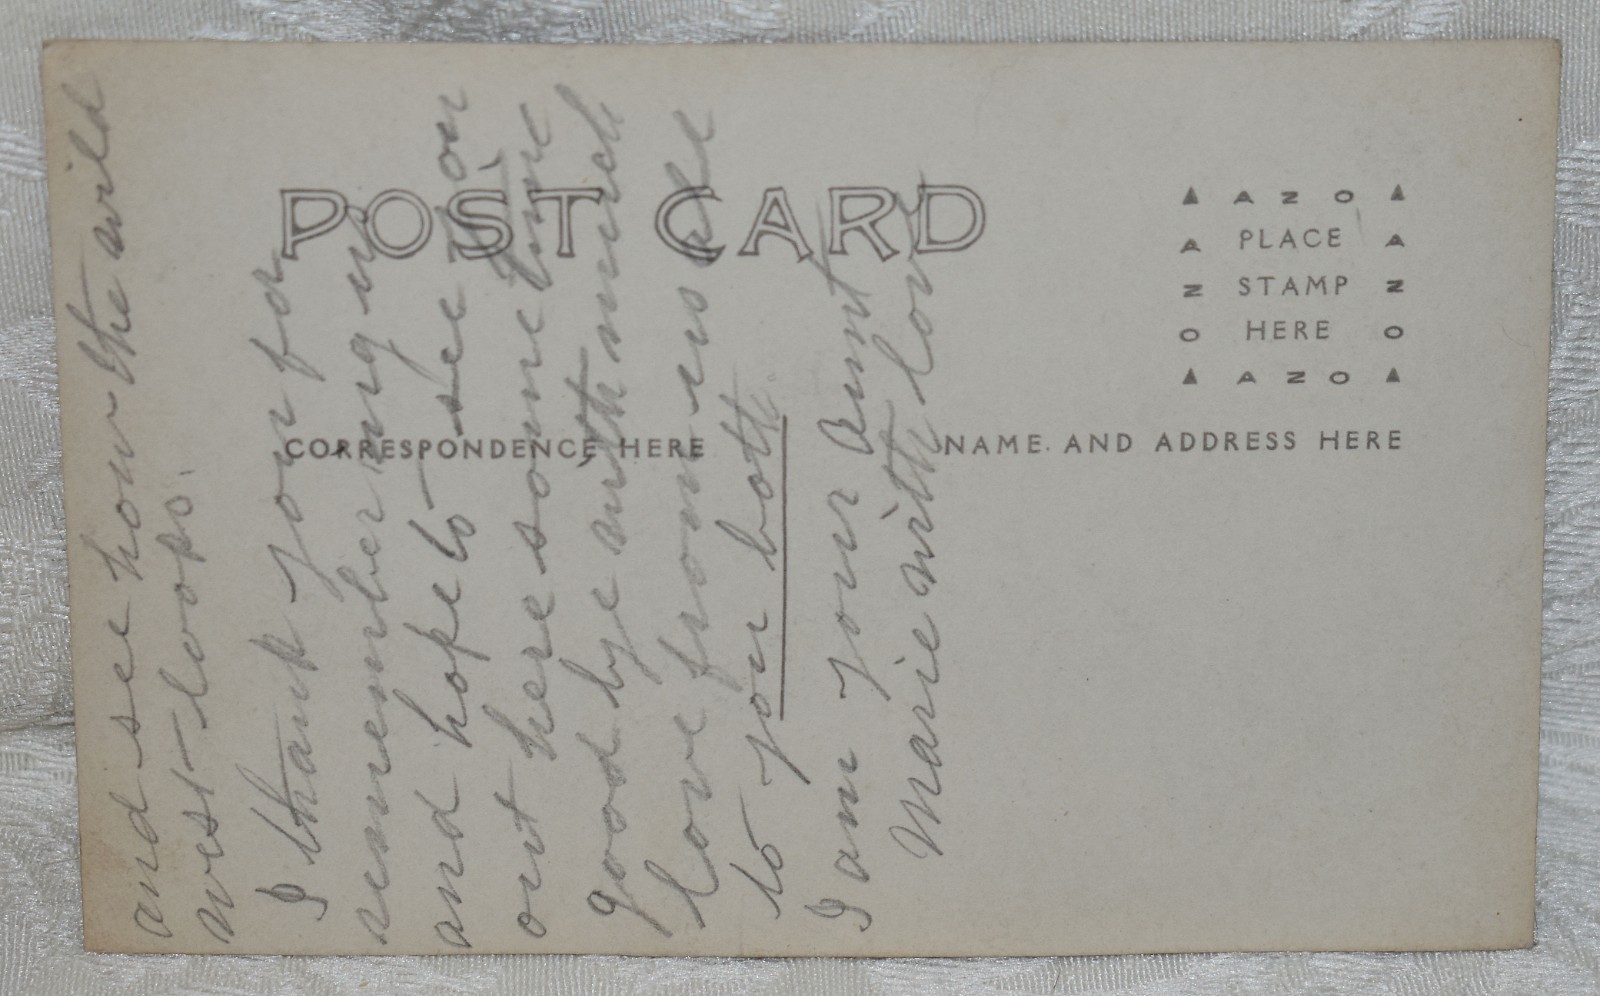 POST CARD
CORRESPONDENCE HERE
NAME AND ADDRESS HERE
AZO
PLACE
STAMP
HERE
AZO
and see how the wild
west looks.
I thank you for
remembering us
and hope to see you
out here some time
good bye with much
love from us all
to you both.
I am your Aunt
Marie with love